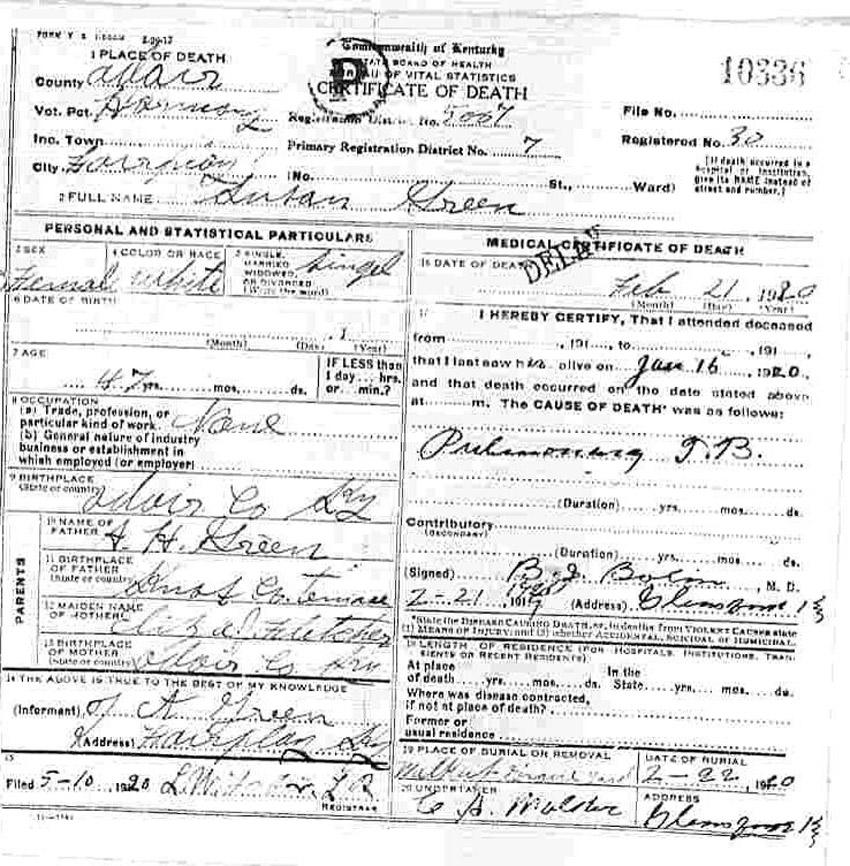 1 PLACE OF DEATH
County Adair
Vot. Pct. Harmony
Inc. Town
City Fairplay
Commonwealth of Kentucky
STATE BOARD OF HEALTH
BUREAU OF VITAL STATISTICS
CERTIFICATE OF DEATH
Registration District No. 5007
Primary Registration District No. 7
(No. St., Ward)
10336
File No.
Registered No. 30
[If death occurred in a
hospital or institution,
give its NAME instead of
street and number.]
2 FULL NAME Susan Green
PERSONAL AND STATISTICAL PARTICULARS
3 SEX
Female
4 COLOR OR RACE
White
5 SINGLE,
MARRIED
WIDOWED,
OR DIVORCED
(Write the word)
Singel
6 DATE OF BIRTH
, 1
(Month) (Day) (Year)
7 AGE
47 yrs. mos. ds.
IF LESS than
1 day... hrs.
or... min.?
8 OCCUPATION
(a) Trade, profession, or
particular kind of work. None
(b) General nature of industry
business or establishment in
which employed (or employer)
9 BIRTHPLACE
(State or country)
Adair Co Ky
PARENTS
10 NAME OF
FATHER
H. Green
11 BIRTHPLACE
OF FATHER
(State or country)
Co.
12 MAIDEN NAME
OF MOTHER
Fletcher
13 BIRTHPLACE
OF MOTHER
(State or country)
Adair Co Ky
14 THE ABOVE IS TRUE TO THE BEST OF MY KNOWLEDGE
(Informant) A Green
(Address) Fairplay Ky
15
Filed 5-10, 1920
REGISTRAR
MEDICAL CERTIFICATE OF DEATH
DELAY
16 DATE OF DEATH
Feb 21, 1920
(Month) (Day) (Year)
17 I HEREBY CERTIFY, That I attended deceased
from , 191 , to , 191 ,
that I last saw her alive on Jan 16, 1920,
and that death occurred on the date stated above
at m. The CAUSE OF DEATH* was as follows:
Pulmonary T.B.
(Duration) yrs. mos. ds.
Contributory
(SECONDARY)
(Duration) yrs. mos. ds.
(Signed) , M. D.
2-21 191 (Address)
*State the DISEASE CAUSING DEATH, or, in deaths from VIOLENT CAUSES state
(1) MEANS OF INJURY; and (2) whether ACCIDENTAL, SUICIDAL or HOMICIDAL.
18 LENGTH OF RESIDENCE (FOR HOSPITALS, INSTITUTIONS, TRAN-
SIENTS OR RECENT RESIDENTS).
At place
of death yrs. mos. ds.
In the
State yrs. mos. ds.
Where was disease contracted,
if not at place of death?
Former or
usual residence
19 PLACE OF BURIAL OR REMOVAL
DATE OF BURIAL
2-22, 1920
20 UNDERTAKER
ADDRESS